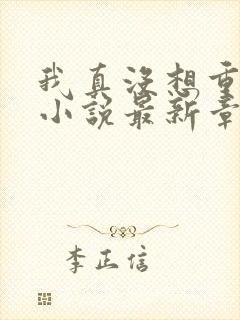 我真没想重
小说最新章
李正信